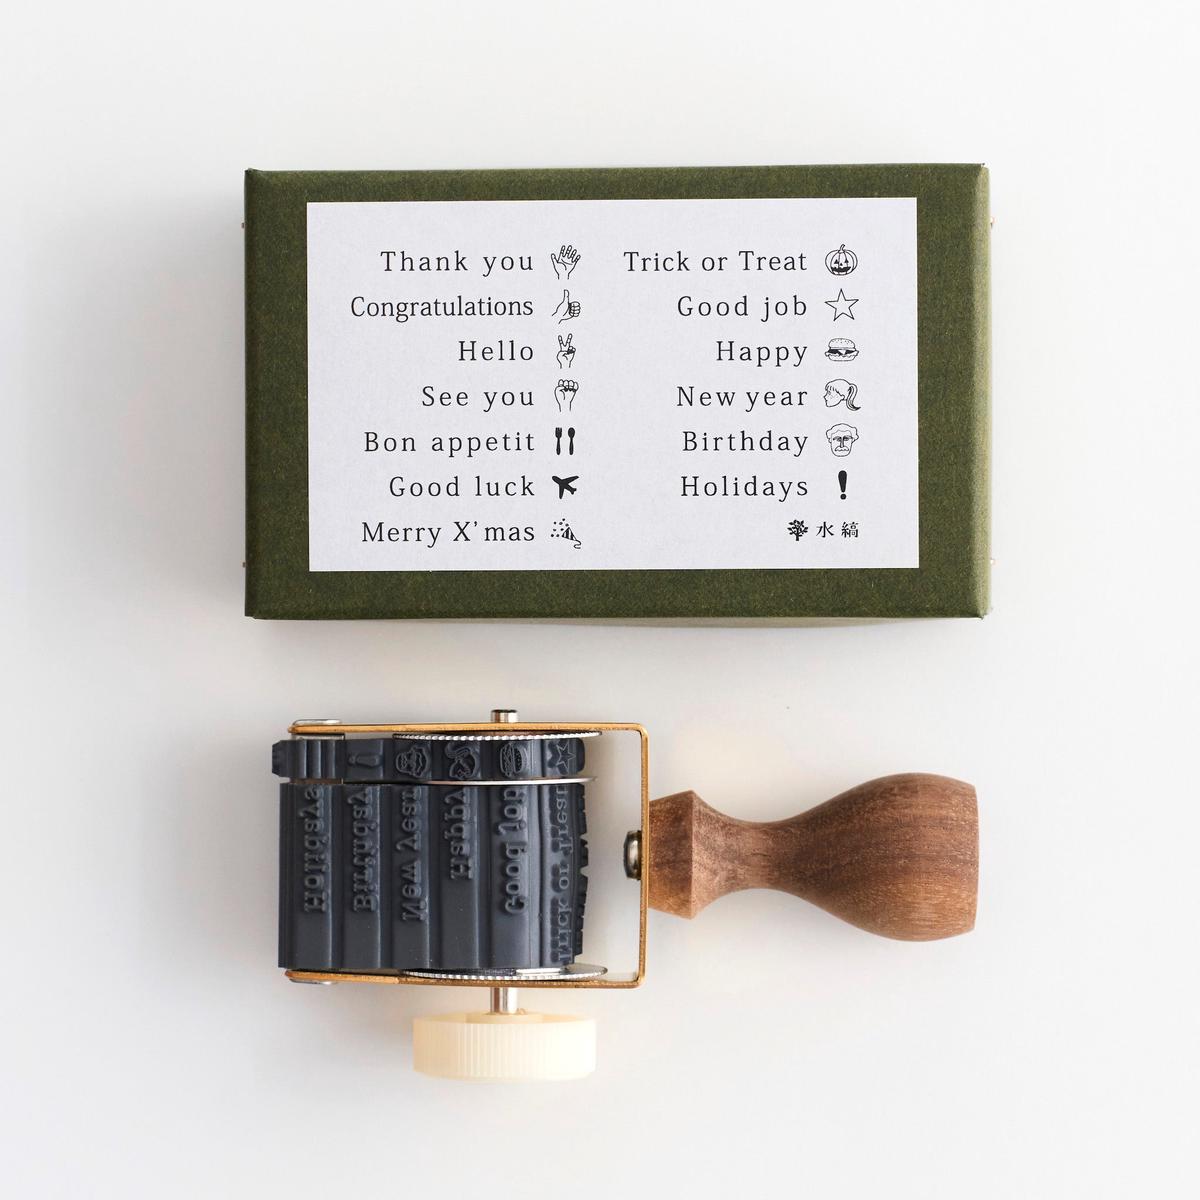 Thank you
Congratulations
Hello
See you
Bon appetit
Good luck
Merry X'mas
Trick or Treat
Good job
Happy
New year
Birthday
Holidays
水縞
Holidays
Birthday
New Year
Happy
Good job
Trick or Treat